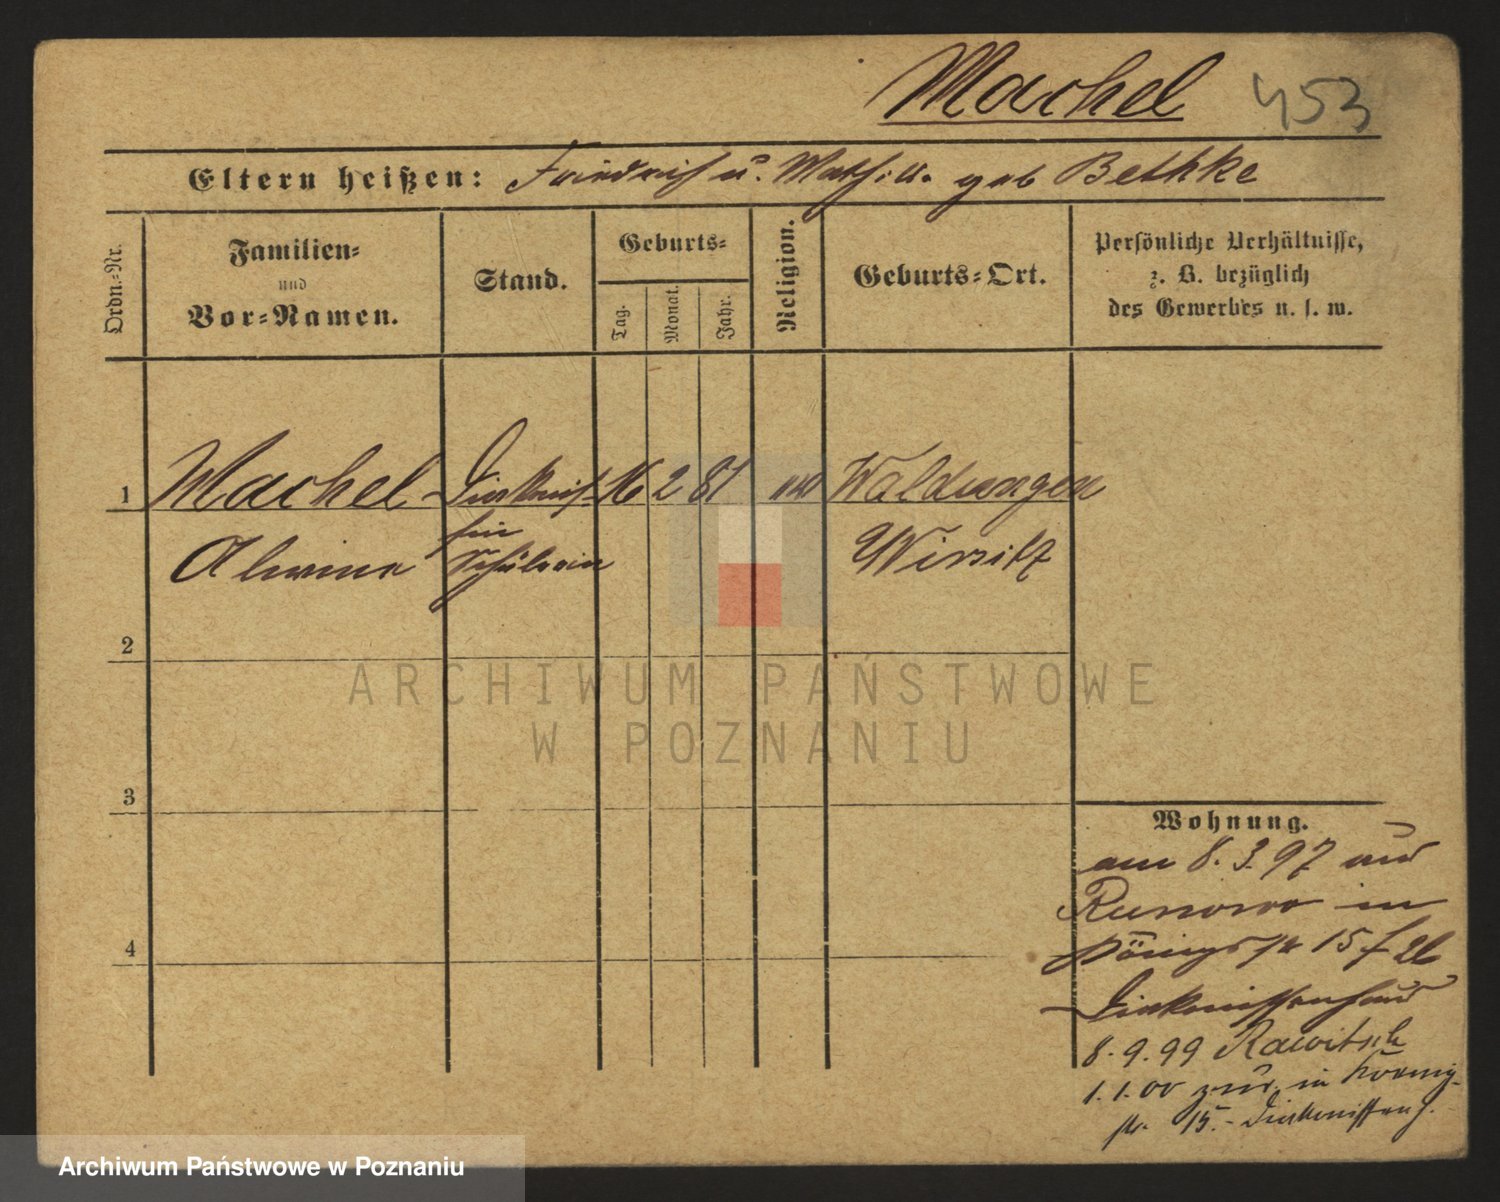 Machel 453
Eltern heißen: Friedrich u. Mathild. geb Bethke
Ordn.-Nr.
Familien-
und
Vor-Namen.
Stand.
Geburts-
Tag.
Monat.
Jahr.
Religion.
Geburts-Ort.
Persönliche Verhältnisse,
z. B. bezüglich
des Gewerbes u. s. w.
1 Machel Diakonis- 16 2 81 Waldungen
Alwine sin Schülerin Wirsitz
2
3
4
Wohnung.
am 8.3.97 aus
Runowo in
Königsstr 15 f
Diakonissenhaus
8.9.99 Rawitsch
1.1.00 zur. in Koenig-
str. 15.- Diakonissenh.
ARCHIWUM PAŃSTWOWE
W POZNANIU
Archiwum Państwowe w Poznaniu